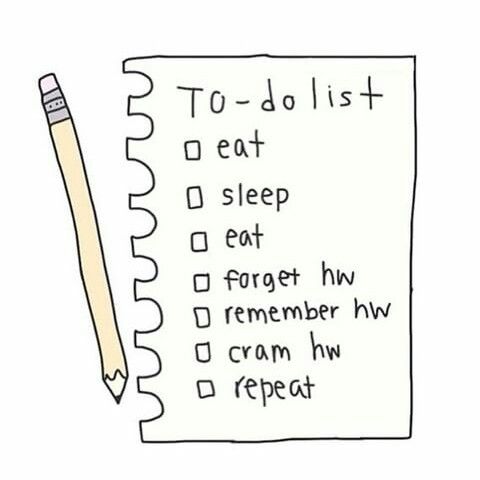 To-do list
eat
sleep
eat
forget hw
remember hw
cram hw
repeat